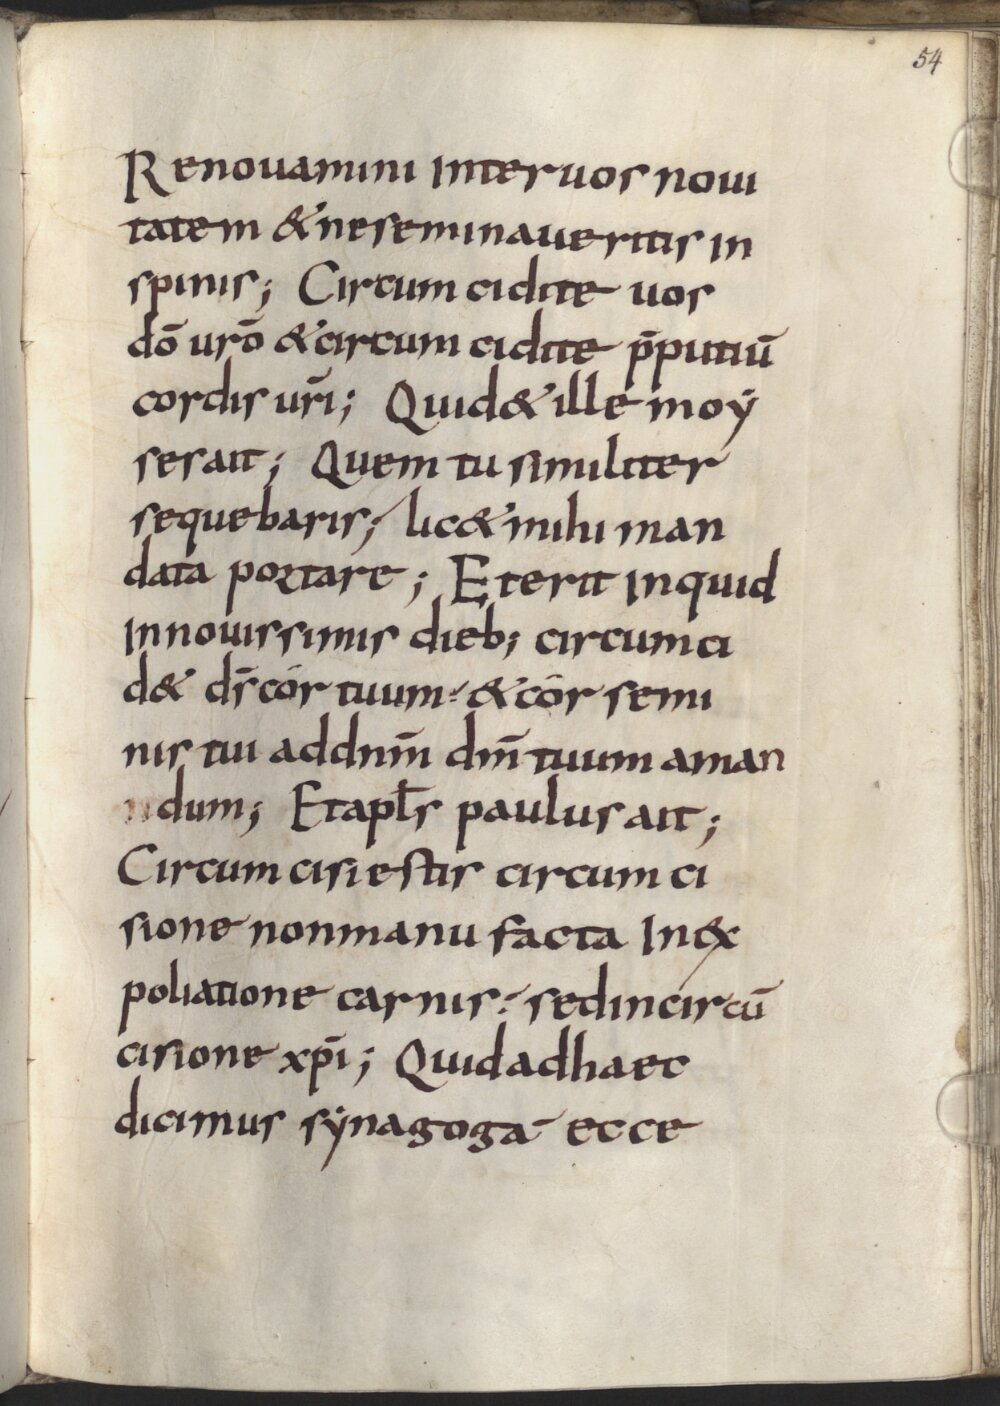 54
Renouamini Inter uos noui
tatem & ne seminaueritis in
spinis; Circum cidite uos
dō urō & circum cidite p̄putiū
cordis ur̄i; Quid & ille moẏ
ses ait; Quem tu similiter
sequebaris; lic& mihi man
data portare; Et erit Inquid
In nouissimis dieb; circum ci
d& ds̄ cor tuum & cor semi
nis tui ad dnm̄ dm̄ tuum aman
ndum; Et apl̄s paulus ait;
Circum cisi estis circum ci
sione non manu facta In ex
poliatione carnis sed in circū
cisione xp̄i; Quid ad haec
dicimus sẏnagoga ecce